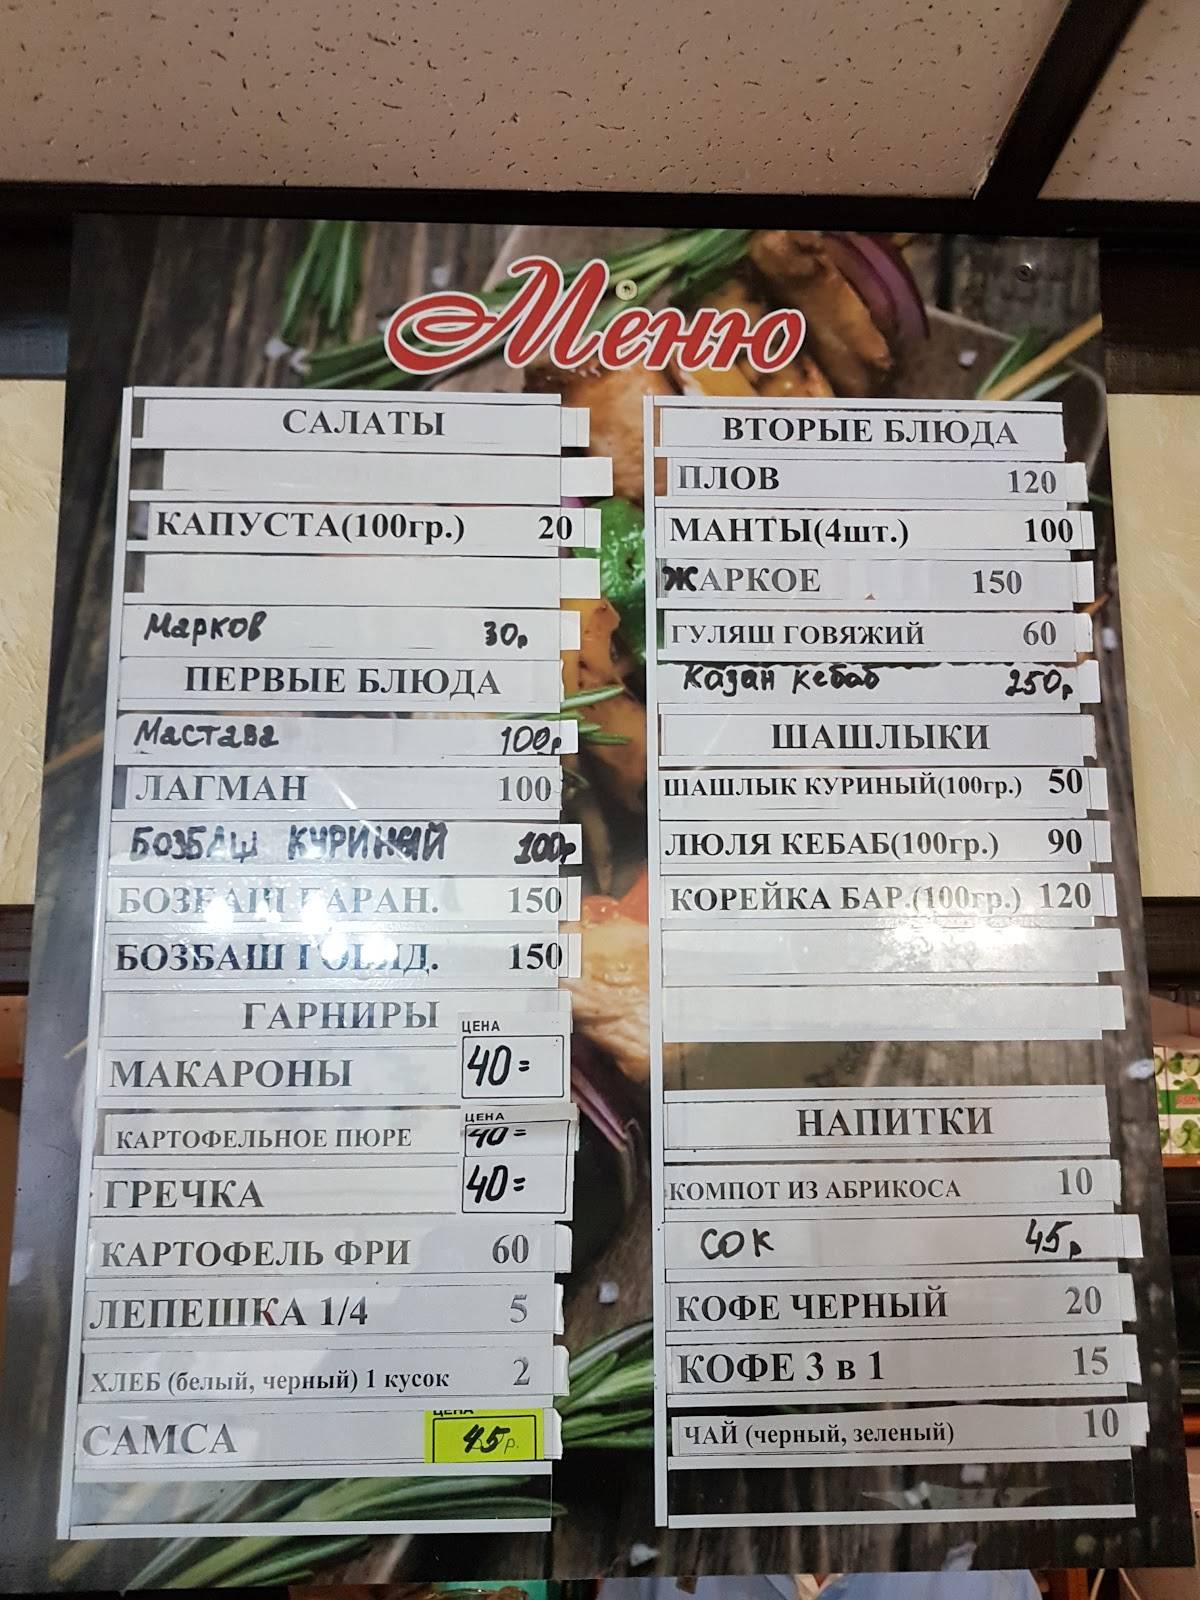 Меню
САЛАТЫ
КАПУСТА(100гр.) 20
Марков 30р
ПЕРВЫЕ БЛЮДА
Мастава 100р
ЛАГМАН 100
БОЗБАШ КУРИНЫЙ 100р
БОЗБАШ БАРАН. 150
БОЗБАШ ГОВЯД. 150
ГАРНИРЫ
ЦЕНА
МАКАРОНЫ 40=
ЦЕНА
КАРТОФЕЛЬНОЕ ПЮРЕ 40=
ГРЕЧКА 40=
КАРТОФЕЛЬ ФРИ 60
ЛЕПЕШКА 1/4 5
ХЛЕБ (белый, черный) 1 кусок 2
ЦЕНА
САМСА 45р.
ВТОРЫЕ БЛЮДА
ПЛОВ 120
МАНТЫ(4шт.) 100
ЖАРКОЕ 150
ГУЛЯШ ГОВЯЖИЙ 60
Казан кебаб 250р
ШАШЛЫКИ
ШАШЛЫК КУРИНЫЙ(100гр.) 50
ЛЮЛЯ КЕБАБ(100гр.) 90
КОРЕЙКА БАР.(100гр.) 120
НАПИТКИ
КОМПОТ ИЗ АБРИКОСА 10
СОК 45р
КОФЕ ЧЕРНЫЙ 20
КОФЕ 3 в 1 15
ЧАЙ (черный, зеленый) 10